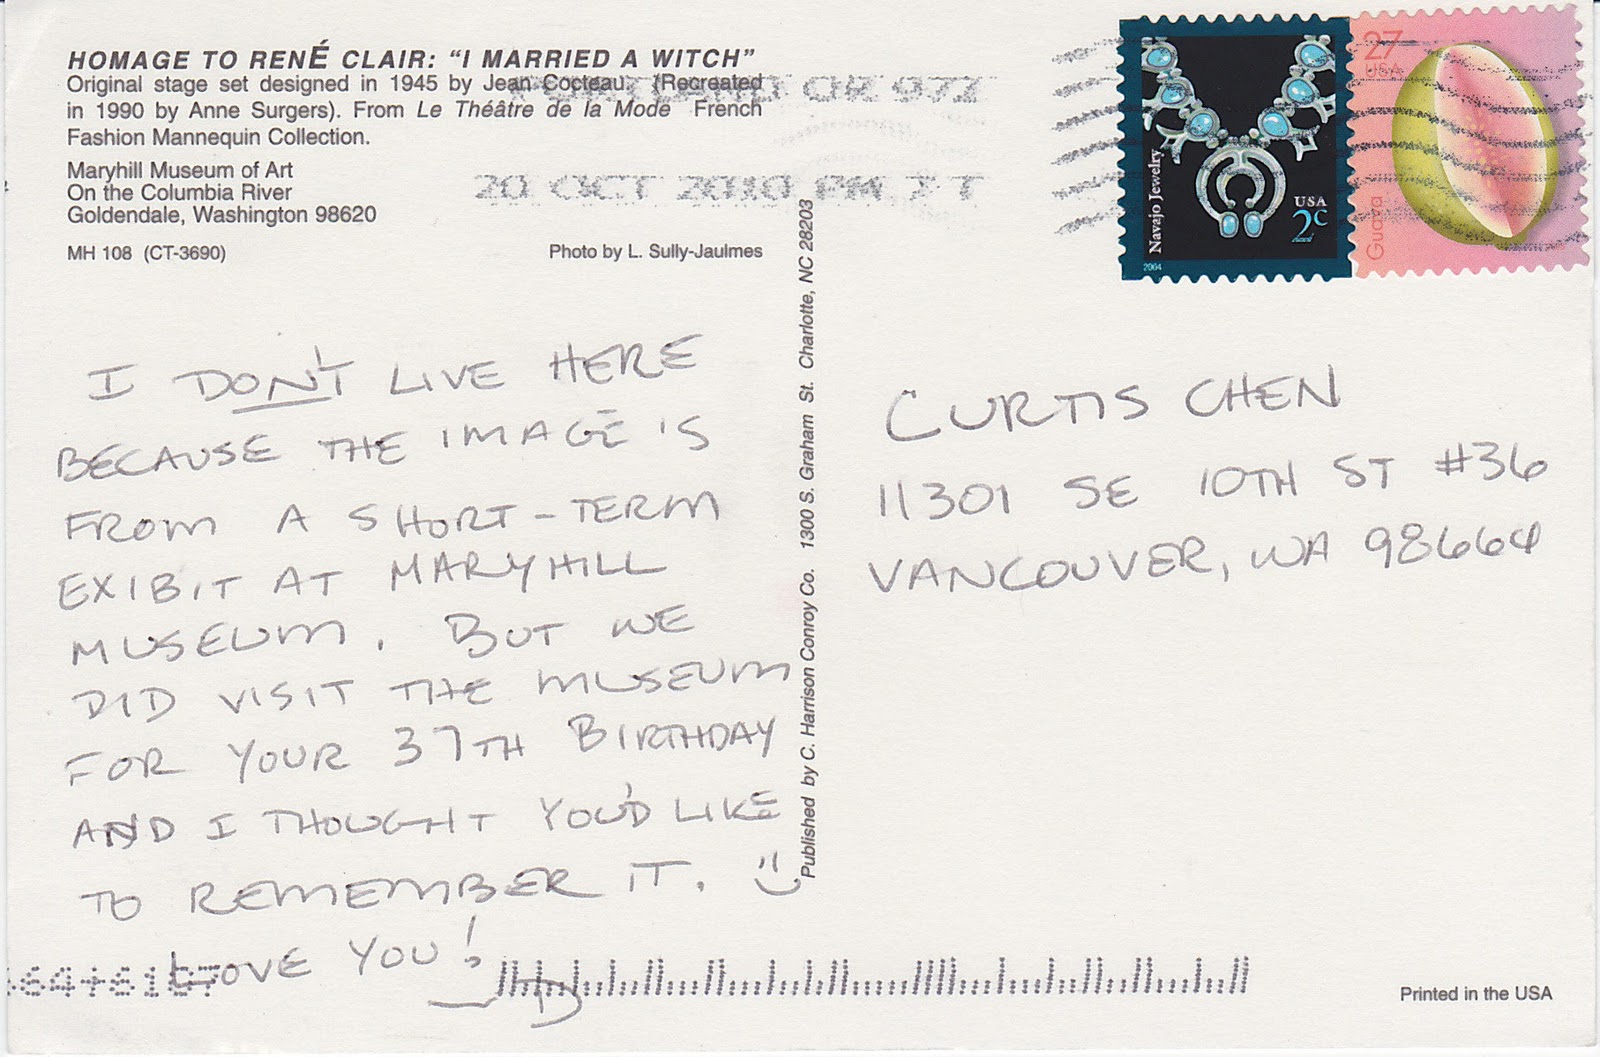 HOMAGE TO RENÉ CLAIR: "I MARRIED A WITCH"
Original stage set designed in 1945 by Jean Cocteau. (Recreated
in 1990 by Anne Surgers). From Le Théâtre de la Mode French
Fashion Mannequin Collection.
Maryhill Museum of Art
On the Columbia River
Goldendale, Washington 98620
MH 108 (CT-3690)
Photo by L. Sully-Jaulmes
OR 972
20 OCT 2010 PM 2 T
Navajo Jewelry
USA
2c
2004
27
USA
Guava
I DON'T LIVE HERE
BECAUSE THE IMAGE IS
FROM A SHORT-TERM
EXIBIT AT MARYHILL
MUSEUM. BUT WE
DID VISIT THE MUSEUM
FOR YOUR 37TH BIRTHDAY
AND I THOUGHT YOU'D LIKE
TO REMEMBER IT.
LOVE YOU!
Published by C. Harrison Conroy Co. 1300 S. Graham St. Charlotte, NC 28203
CURTIS CHEN
11301 SE 10TH ST #36
VANCOUVER, WA 98664
Printed in the USA